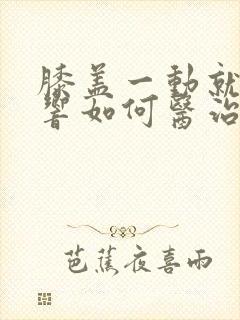 膝盖一動就
響如何醫治
芭蕉夜喜雨